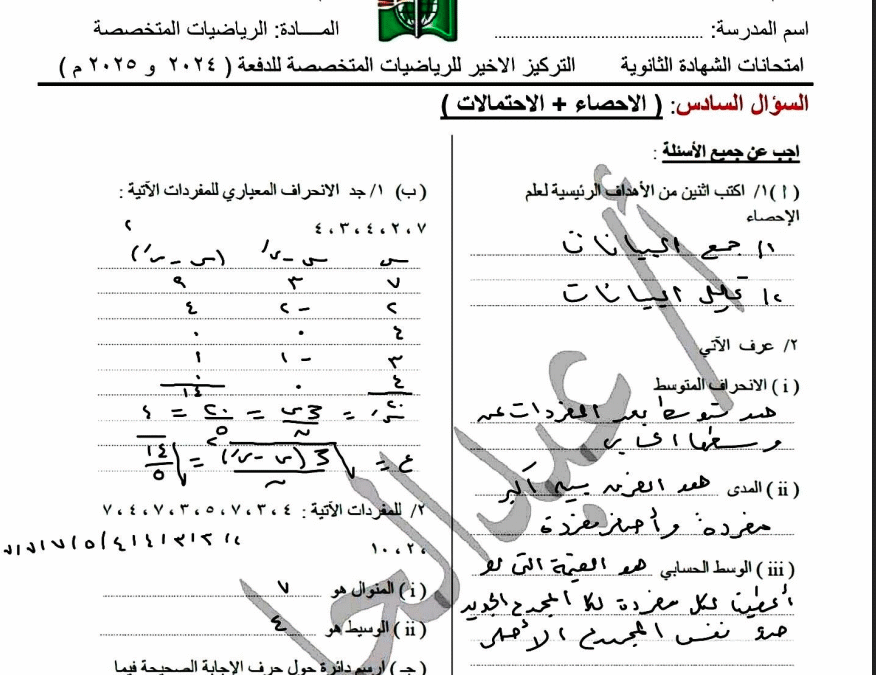 اسم المدرسة: ........................................ المـــادة: الرياضيات المتخصصة
امتحانات الشهادة الثانوية التركيز الاخير للرياضيات المتخصصة للدفعة ( ٢٠٢٤ و ٢٠٢٥ م )
السؤال السادس: ( الاحصاء + الاحتمالات )
اجب عن جميع الأسئلة :
( أ ) ١/ اكتب اثنين من الأهداف الرئيسية لعلم
الإحصاء
١/ جمع البيانات
٢/ البيانات
٢/ عرف الآتي
( i ) الانحراف المتوسط
هو متوسط بعد المفردات عن
وسطها الحسابي
( ii ) المدى هو الفرق بين أكبر
مفردة وأصغر مفردة
( iii ) الوسط الحسابي هو القيمة التي لو
أعطيت لكل مفردة لكا المجموع الجديد
هو نفس المجموع الأصلي
( ب ) ١/ جد الانحراف المعياري للمفردات الآتية :
٧ ، ٢ ، ٤ ، ٣ ، ٤
س س - س/ (س - س/)٢
٧ ٣ ٩
٢ -٢ ٤
٤ ٠ ٠
٣ -١ ١
٤ ٠ ٠
٢٠ ١٤
س/ = مجـ س / ن = ٢٠ / ٥ = ٤
ع = √ مجـ (س - س/)٢ / ن = √ ١٤ / ٥
٢/ للمفردات الآتية : ٤ ، ٣ ، ٧ ، ٥ ، ٣ ، ٧ ، ٤ ، ٧
، ٢ ، ١٠
( i ) المنوال هو ٧
( ii ) الوسيط هو ٤
( جـ ) ارسم دائرة حول حرف الإجابة الصحيحة فيما